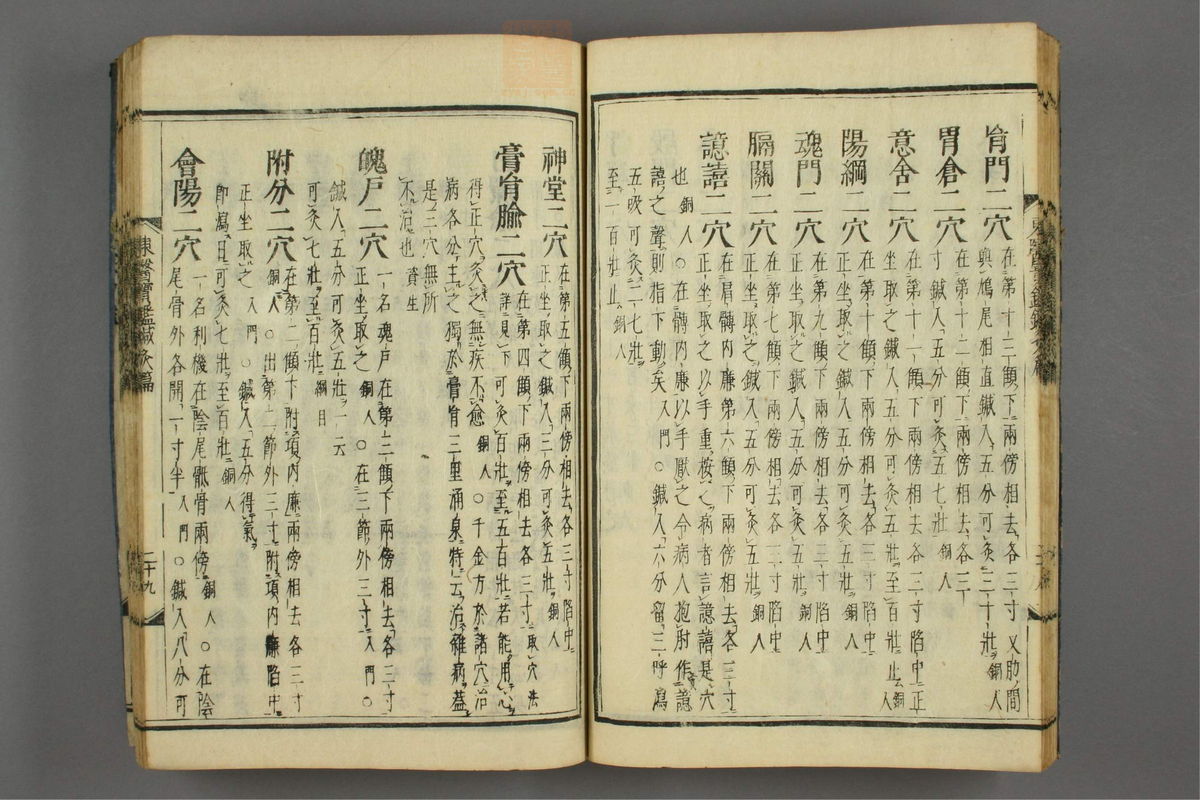 肓門二穴
在第十三顀下兩傍相去各三寸又肋間
與鳩尾相直鍼入五分可灸三十壯銅人
胃倉二穴
在第十二顀下兩傍相去各三
寸鍼入五分可灸五七壯銅人
意舍二穴
在第十一顀下兩傍相去各三寸陷中正
坐取之鍼入五分可灸五壯至百壯止銅人
陽綱二穴
在第十顀下兩傍相去各三寸陷中
正坐取之鍼入五分可灸五壯銅人
魂門二穴
在第九顀下兩傍相去各三寸陷中
正坐取之鍼入五分可灸五壯銅人
膈關二穴
在第七顀下兩傍相去各三寸陷中
正坐取之鍼入五分可灸五壯銅人
譩譆二穴
在肩髆內廉第六顀下兩傍相去各三寸
正坐取之以手重按之病者言譩譆是穴
也銅人○在髆內廉以手厭之令病人抱肘作譩
譆之聲則指下動矣入門○鍼入六分留三呼瀉
五吸可灸二七壯
至一百壯止銅人
神堂二穴
在第五顀下兩傍相去各三寸陷中
正坐取之鍼入三分可灸五壯銅人
膏肓腧二穴
在第四顀下兩傍相去各三寸取穴法
詳見下可灸百壯至五百壯若能用心
得正穴灸之無疾不愈銅人○千金方於諸穴治
病各分主之獨於膏肓三里涌泉特云治雜病蓋
是三穴無所
不治也資生
魄戶二穴
一名魂戶在第三顀下兩傍相去各三寸
正坐取之銅人○在三節外三寸入門○
鍼入五分可灸五壯一云
可灸七壯至百壯綱目
附分二穴
在第二顀下附項內廉兩傍相去各三寸
銅人○出第二節外三寸附項內廉陷中
正坐取之入門○鍼入五分得氣
即瀉日可灸七壯至百壯銅人
會陽二穴
一名利機在陰尾骶骨兩傍銅人○在陰
尾骨外各開一寸半入門○鍼入八分可
東醫寶鑑鍼灸篇
二十九